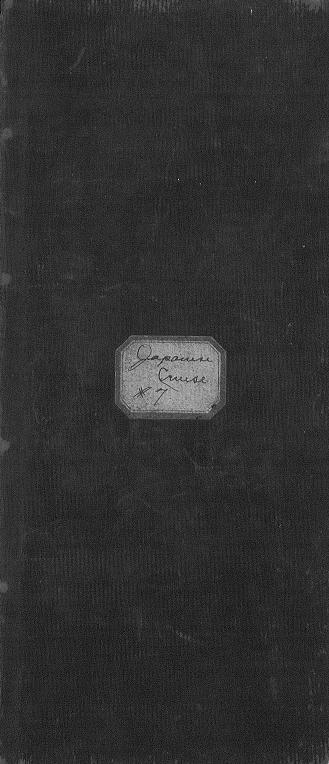 Japanese
Cruise
# 7